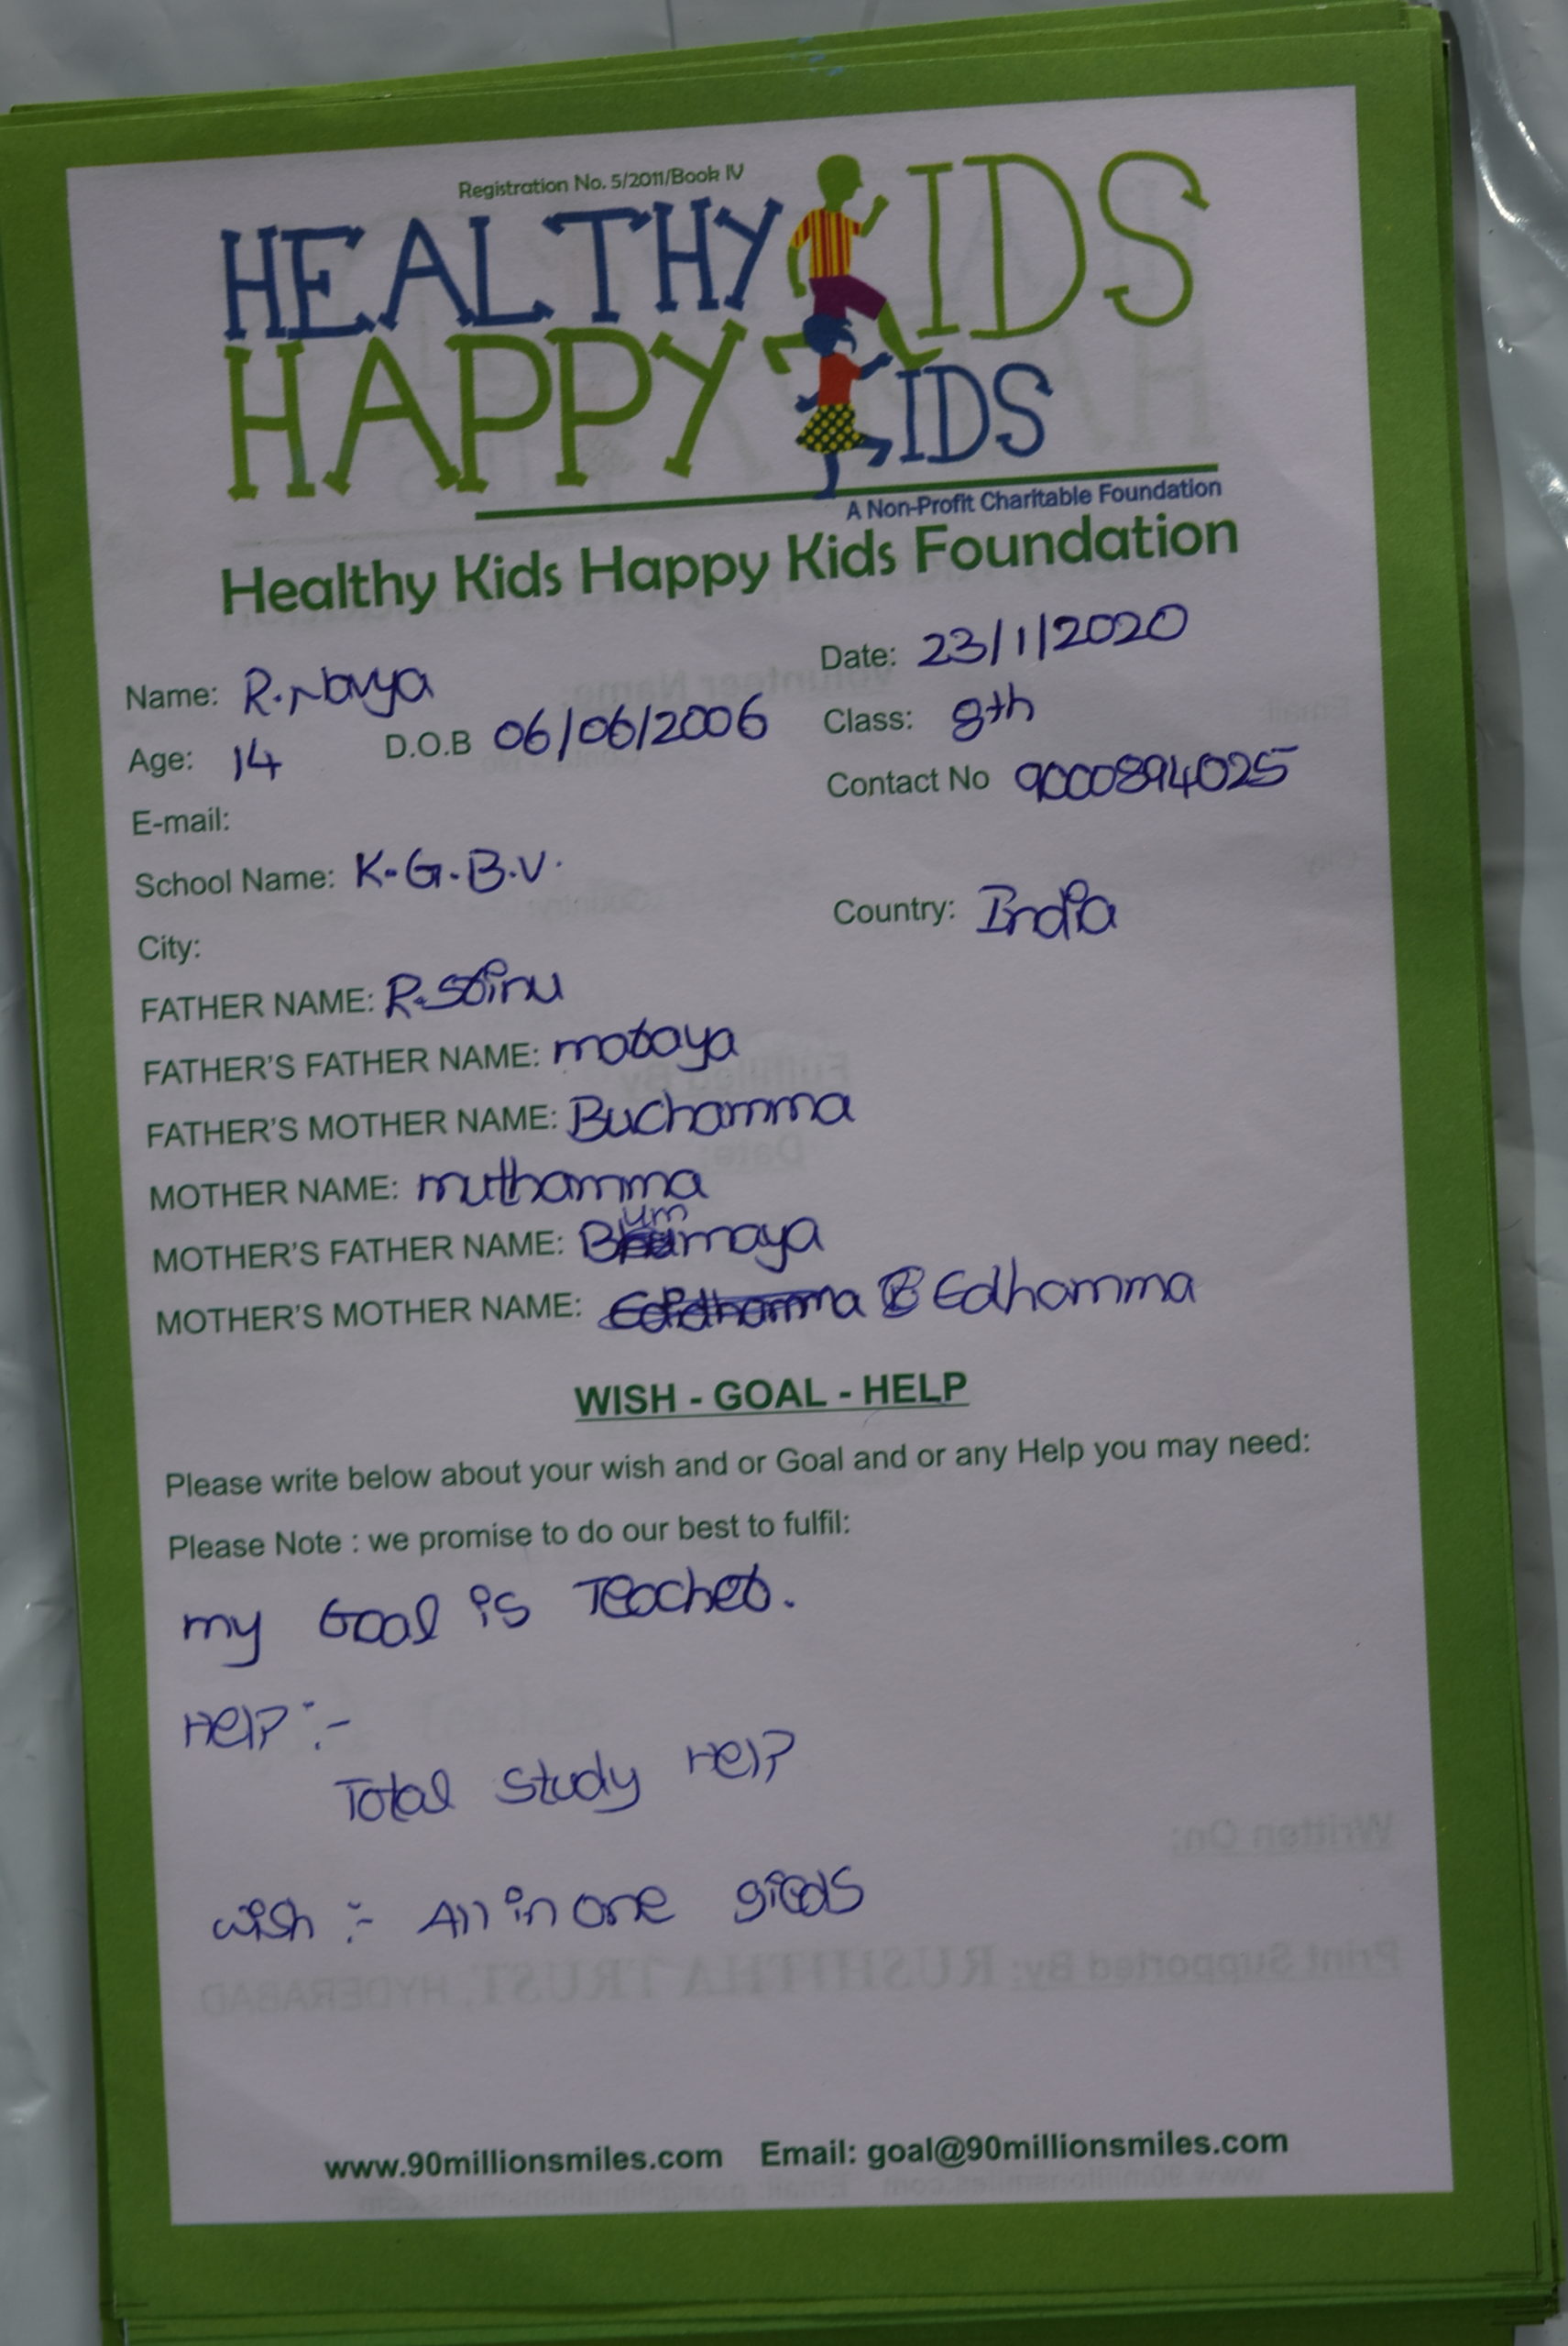 Registration No. 5/2011/Book IV
HEALTHY KIDS
HAPPY KIDS
A Non-Profit Charitable Foundation
Healthy Kids Happy Kids Foundation
Name: R. Navya Date: 23/1/2020
Age: 14 D.O.B 06/06/2006 Class: 8th
E-mail: Contact No 9000894025
School Name: K-G.B.V.
City: Country: India
FATHER NAME: R. Srinu
FATHER'S FATHER NAME: moraya
FATHER'S MOTHER NAME: Buchamma
MOTHER NAME: muthamma
MOTHER'S FATHER NAME: Bummaya
MOTHER'S MOTHER NAME: Edhamma
WISH - GOAL - HELP
Please write below about your wish and or Goal and or any Help you may need:
Please Note : we promise to do our best to fulfil:
my Goal is Teacher.
Help :-
Total Study Help
wish :- All in one
www.90millionsmiles.com Email: goal@90millionsmiles.com